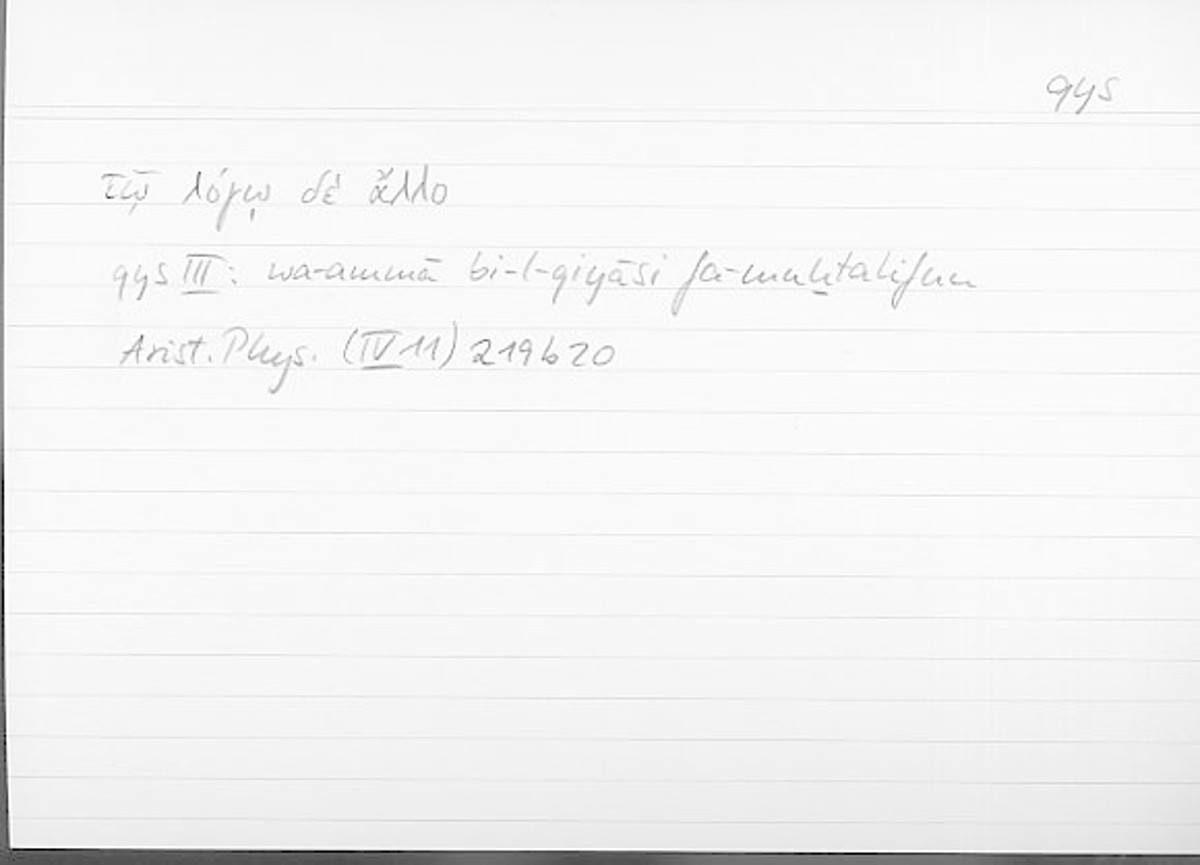 qys
τῷ λόγῳ δὲ ἄλλο
qys III: wa-ammā bi-l-qiyāsi fa-muḫtalifun
Arist. Phys. (IV 11) 219 b 20